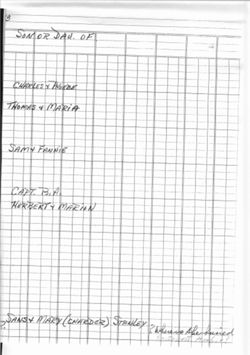 SON OR DAU. OF
CHARLES &
THOMAS & MARIA
SAM & FANNIE
CAPT. B.A.
HERBERT & MARION
SANS & MARY (CHARDER) STANLEY